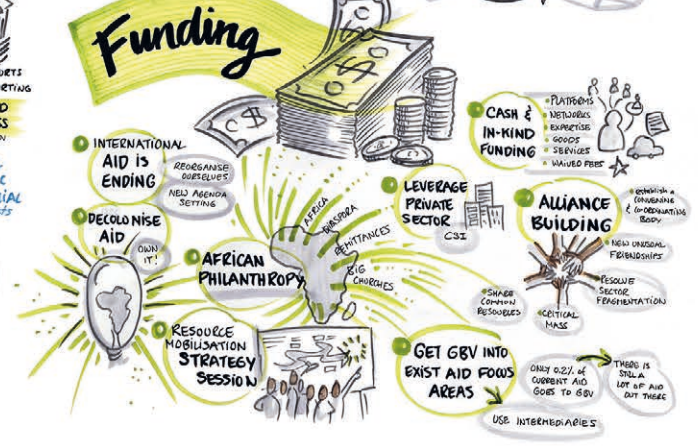 Funding
INTERNATIONAL
AID IS
ENDING
REORGANISE
OURSELVES
NEW AGENDA
SETTING
DECOLONISE
AID
OWN
IT!
AFRICAN
PHILANTHROPY
AFRICA
DIASPORA
REMITTANCES
BIG
CHURCHES
RESOURCE
MOBILISATION
STRATEGY
SESSION
LEVERAGE
PRIVATE
SECTOR
CSI
CASH &
IN-KIND
FUNDING
• PLATFORMS
• NETWORKS
• EXPERTISE
• GOODS
• SERVICES
• WAIVED FEES
ALLIANCE
BUILDING
• establish a
CONVENING
& CO-ORDINATING
BODY
• NEW UNUSUAL
FRIENDSHIPS
• RESOLVE
SECTOR
FRAGMENTATION
• CRITICAL
MASS
• SHARE
COMMON
RESOURCES
GET GBV INTO
EXIST AID FOCUS
AREAS
ONLY 0.2% of
CURRENT AID
GOES TO GBV
THERE IS
STILL A
LOT OF AID
OUT THERE
USE INTERMEDIARIES